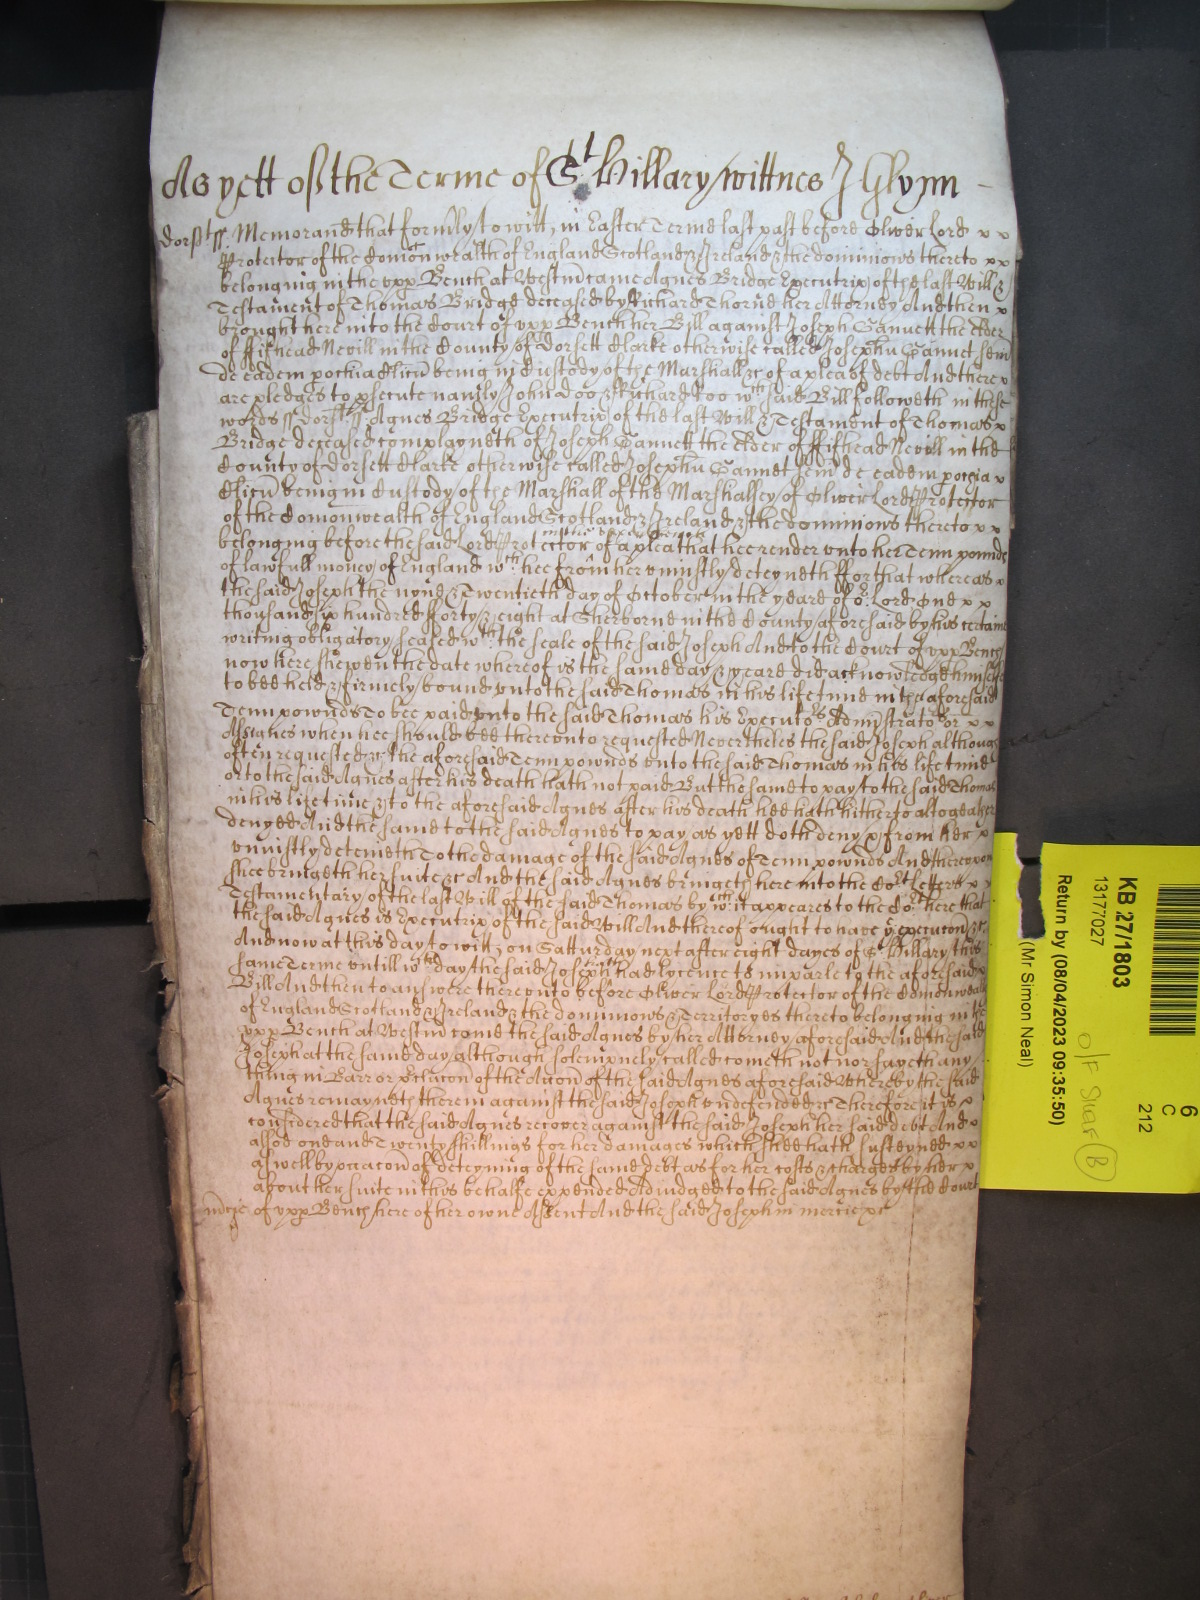 As yett of the Terme of St Hillary wittnes J Glynn
Dorst ss Memorand that formly to witt, in Easter Terme last past before Oliver Lord x x
Protector of the Comonwealth of England Scotland & Ireland & the dominions thereto x x
belonging in the upp Bench at Westm came Agnes Bridge Executrix of the last Will &
Testament of Thomas Bridge deceased by Richard Thorne her Attorney And then x
brought here into the Court of upp Bench her Bill against Joseph Gannett the elder
of Fifhead Nevill in the County of Dorsett Clarke otherwise called Josephu Gannet sen
de eadem pochia Clicu being in Custody of the Marshall &c of a plea of debt And there x
are pledges to psecute namly John Doo & Richard Roo wch said Bill followeth in these
words ss Dorst ss Agnes Bridge Executrix of the last Will & Testament of Thomas x
Bridge deceased complayneth of Joseph Gannett the elder of Fifhead Nevill in the
County of Dorsett Clarke otherwise called Josephu Gannet sen de eadem pochia x
Clicu benig in Custody of the Marshall of the Marshallsey of Oliver Lord Protector
of the Comonwealth of England Scotland & Ireland & the dominions thereto x x
in the upper Bench
belonging before the said Lord Protector of a plea that hee render unto her Tenn pounds
of lawfull money of England wch hee from her uniustly deteyneth For that whereas x
the said Joseph the nyne & Twentieth day of October in the yeare of or Lord One x x
thousand six hundred Forty & eight at Sherborne in the County aforesaid by his certaine
writing obligatory sealed wth the seale of the said Joseph And to the Court of upp Bench
now here shewen the date whereof is the same day & yeare did acknowledge himselfe
to bee held & firmely bound unto the said Thomas in his life time in the aforesaid
Tenn pownds To bee paid unto the said Thomas his Executors Administrators or x x
Assignes when hee should bee thereunto requested Nevertheles the said Joseph although
often requested &c the aforesaid Tenn pownds unto the said Thomas in his life time
or to the said Agnes after his death hath not paid But the same to pay to the said Thomas
in his life time & to the aforesaid Agnes after his death hee hath hitherto altogeather
denyed And the same to the said Agnes to pay as yett doth deny & from her x
uniustly deteineth To the damage of the said Agnes of Tenn pownds And thereupon
shee bringeth her suite &c And the said Agnes bringeth here into the Cort Letters x x
Testamentary of the last Will of the said Thomas by wch it appeares to the Cort here that
the said Agnes is Executrix of the said Will And thereof ought to have ye execucon &c
And now at this day to witt, on Satturday next after eight dayes of St Hillary this
same Terme untill wch day the said Joseph had lycence to imparle to the aforesaid
Bill And then to answere thereunto before Oliver Lord Protector of the Comonwealth
of England Scotland & Ireland & the dominions & Territoryes thereto belonging in the
upp Bench at Westm come the said Agnes by her Attorney aforesaid And the said
Joseph at the same day although solempnely called cometh not nor sayeth any
thing in Barr or pclucon of the Acon of the said Agnes aforesaid Whereby the said
Agnes remayneth therein against the said Joseph undefended &c Therefore it is x
considered that the said Agnes recover against the said Joseph her said debt And x
alsoe one and Twenty shillings for her damages which shee hath susteyned x x
aswell by occacon of deteyning of the same debt as for her costs & charges by her x
about her suite in this behalfe expended Adiudged to the said Agnes by the Court
mcie of upp Bench here of her owne Assent And the said Joseph in mercie &c
KB 27/1803
13177027
Return by (08/04/2023 09:35:50)
(Mr Simon Neal)
6
C
212
B